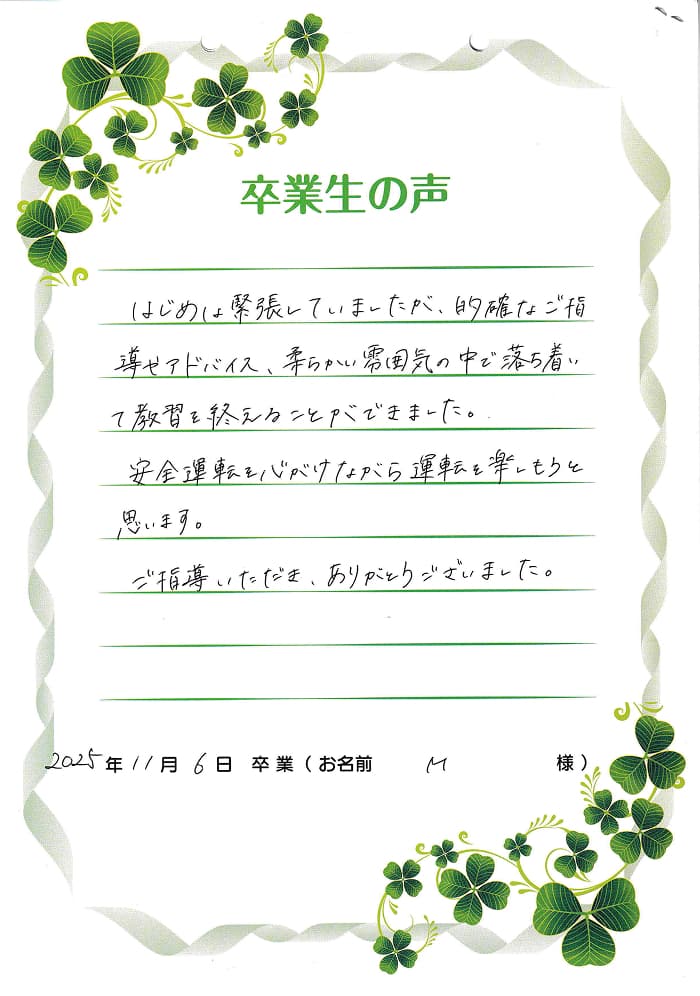 卒業生の声
はじめは緊張していましたが、的確なご指
導やアドバイス、柔らかい雰囲気の中で落ち着い
て教習を終えることができました。
安全運転を心がけながら運転を楽しもうと
思います。
ご指導いただき、ありがとうございました。
2025年11月6日 卒業(お名前 M 様)